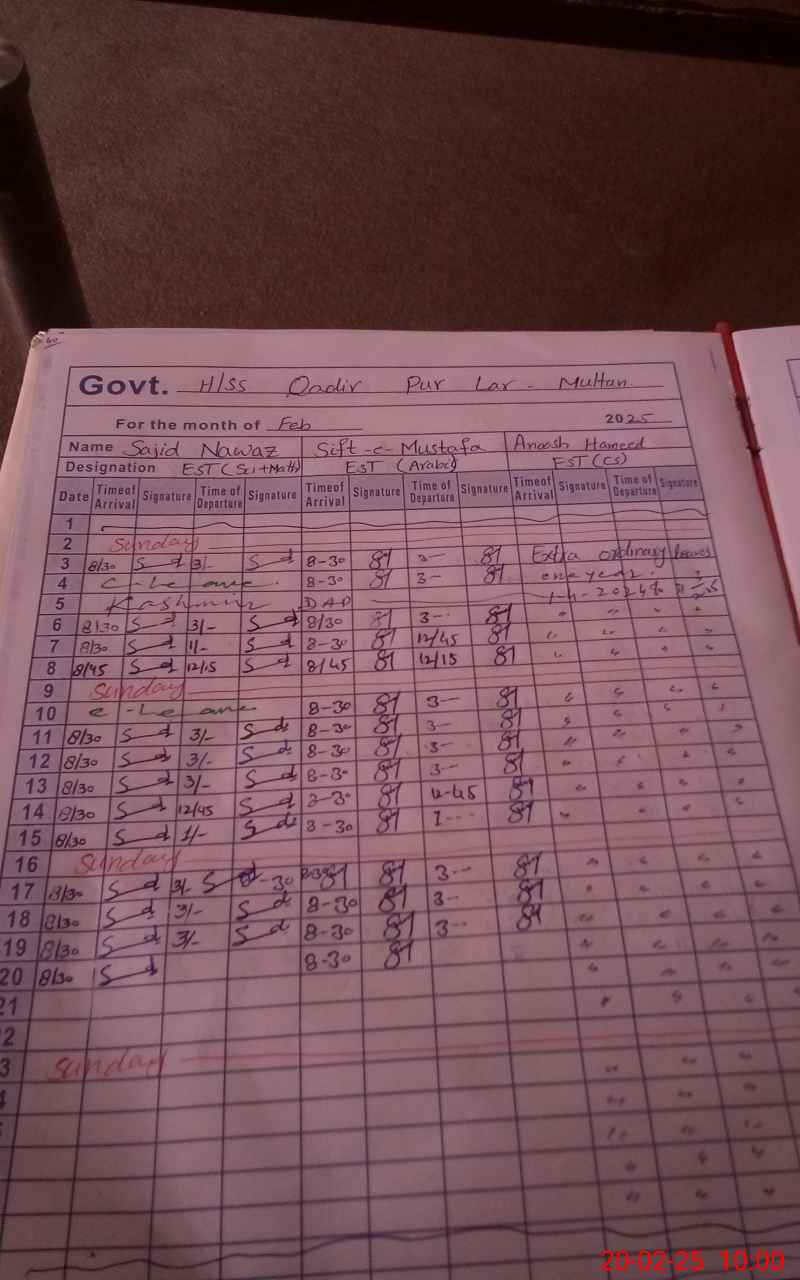 Govt. H/SS Qadir Pur Lar - Multan
For the month of Feb 2025
Name Sajid Nawaz Sift-e-Mustafa Anoosh Hameed
Designation EST (Sci+Math) EST (Arabic) EST (CS)
Date Time of Arrival Signature Time of Departure Signature Time of Arrival Signature Time of Departure Signature Time of Arrival Signature Time of Departure Signature
1
2 Sunday
3 8/30 3/- 8-30 3-- Extra ordinary leaves
4 C-Leave 8-30 3- one year.
5 Kashmir DAP
6 8/30 3/- 8/30 3--
7 8/30 1/- 8-30 12/45
8 8/45 12/15 8/45 12/15
9 Sunday
10 C-Leave 8-30 3--
11 8/30 3/- 8-30 3--
12 8/30 3/- 8-30 3--
13 8/30 3/- 8-30 3--
14 8/30 12/45 12-45
15 8/30 1/- 8-30 1---
16 Sunday
17 8/30 3/- 3--
18 8/30 3/- 8-30 3-
19 8/30 3/- 8-30 3--
20 8/30 8-30
21
2
3 Sunday
20-02-25 10.00